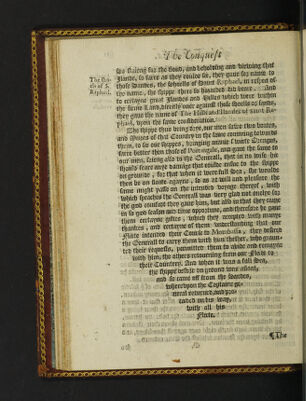 The Conquest
The sho-
els of S.
Raphael.
sea baieng for the flood, and beholding and viewing that
Ilande, so farre as they coulde see, they gaue for name to
those sandes, the shoelds of Saint Raphael, in respect of
the name, the shippe there so stranded did beare. And
to certayne great Ilandes and Hilles which were within
the firme Land, directly ouer against those shoelds or sands,
they gaue the name of The Hilles and Ilandes of saint Ra-
phael, vpon the same consideration.
The shippe thus being drye, our men sawe two boates,
and Moores of that Countrey in the same comming towards
them, to see our shippes, bringing manie sweete Orenges,
farre better then those of Portingale, and gaue the same to
our men, saieng also to the Generall, that in no wise he
should feare anye damage that coulde ensue to the shippe
on grounde, for that when it were full Sea, she woulde
then be on flotte againe, so as he will and pleasure the
same might passe on the intended voyage thereof, with
which speaches the Generall was very glad
the good comfort they gaue him, but also in that they came
in so good season and time opportune, and therefore he gaue
them certayne giftes, which they accepted with manye
thankes, and certayne of them vnderstanding that our
Fleete intended their Course to Mombassa, they desired
the Generall to carry them with him thether, who graun-
ted their requeste, permitting them to abide and remayne
with him, the others retourning from our Fleete to
their Countrey. And when it was a full Sea,
the shippe which lay on ground was aflotte,
and so came off from the Sandes,
wherevpon the Captaine ge-
nerall retourned, and pro-
ceeded on his way,
with all his
Fleete.
¶The